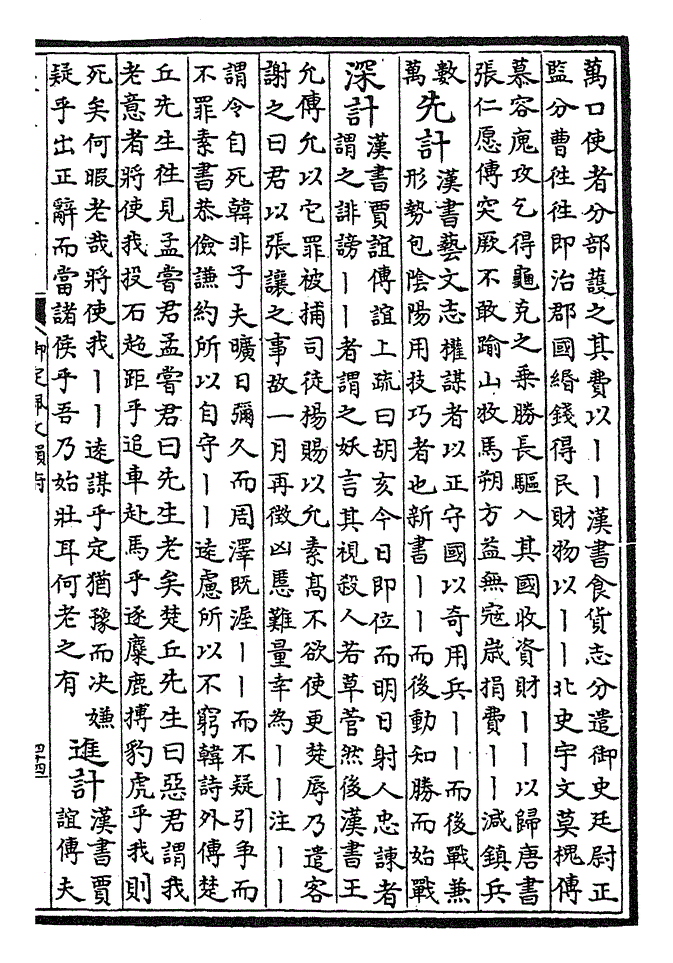 萬口使者分部䕶之其費以丨丨漢書食貨志分遣御史廷尉正
監分曹徃徃即治郡國緡錢得民財物以丨丨北史宇文莫槐傳
慕容廆攻乞得龜克之乗勝長驅入其國收資財丨丨以歸唐書
張仁愿傳突厥不敢踰山牧馬朔方益無寇歲捐費丨丨減鎮兵
數
萬
先計
漢書藝文志權謀者以正守國以奇用兵丨丨而後戰兼
形勢包陰陽用技巧者也新書丨丨而後動知勝而始戰
深計
漢書賈誼傳誼上疏曰胡亥今日即位而明日射人忠諫者
謂之誹謗丨丨者謂之妖言其視殺人若草菅然後漢書王
允傳允以它罪被捕司徒揚賜以允素髙不欲使更楚辱乃遣客
謝之曰君以張讓之事故一月再徵凶慝難量幸為丨丨注丨丨
謂令自死韓非子夫曠日彌久而周澤既渥丨丨而不疑引争而
不罪素書恭儉謙約所以自守丨丨逺慮所以不窮韓詩外傳楚
丘先生徃見孟嘗君孟嘗君曰先生老矣楚丘先生曰惡君謂我
老意者將使我投石超距乎追車赴馬乎逐麋鹿搏豹虎乎我則
死矣何暇老哉將使我丨丨逺謀乎定猶豫而决嫌
疑乎出正辭而當諸侯乎吾乃始壯耳何老之有
進計
漢書賈
誼傳夫
御定佩文韻府
四十四